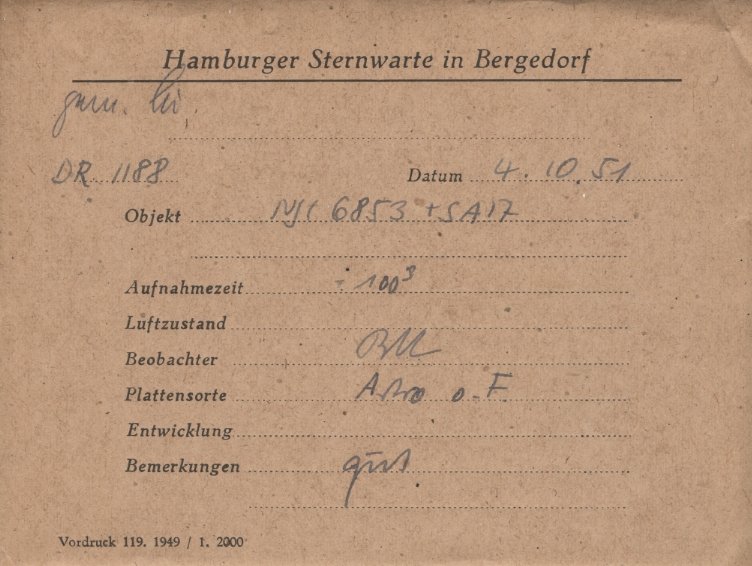 Hamburger Sternwarte in Bergedorf
gem. Li
DR 1188 Datum 4.10.51
Objekt NGC 6853 + SA 17
Aufnahmezeit 100³
Luftzustand
Beobachter
Plattensorte Astro o. F.
Entwicklung
Bemerkungen gut
Vordruck 119. 1949 / 1. 2000